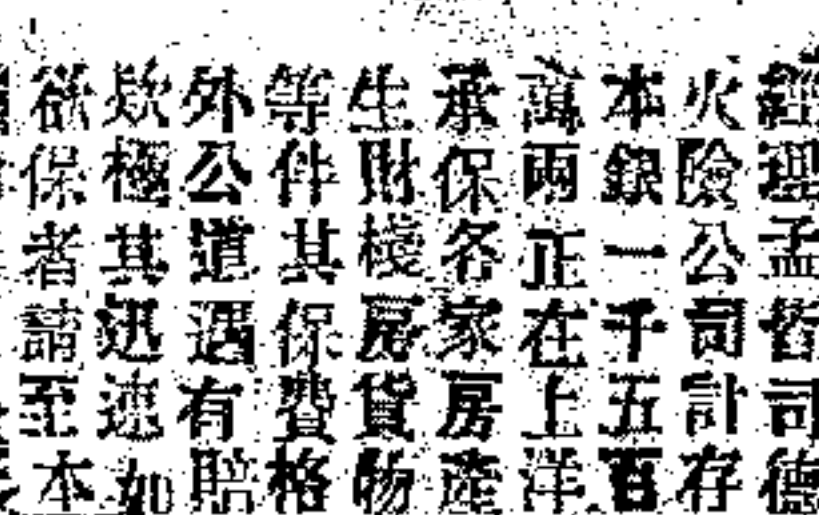 經理孟哲司德
火險公司計存
本銀一千五百
萬兩正在上洋
承保各家房產
生財棧房貨物
等件其保費格
外公道遇有賠
欵極其迅速如
欲保者請至本